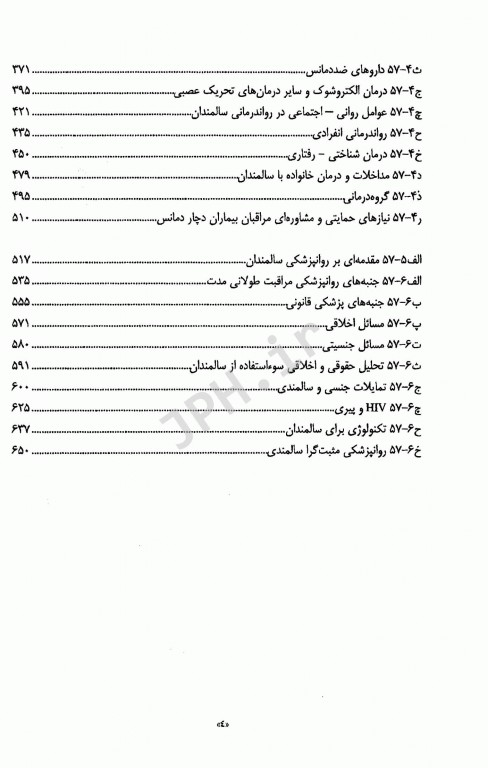 ث۴-۵۷ داروهای ضددمانس ........ ۳۷۱
ج۴-۵۷ درمان الکتروشوک و سایر درمان‌های تحریک عصبی ........ ۳۹۵
چ۴-۵۷ عوامل روانی – اجتماعی در رواندرمانی سالمندان ........ ۴۲۱
ح۴-۵۷ رواندرمانی انفرادی ........ ۴۳۵
خ۴-۵۷ درمان شناختی – رفتاری ........ ۴۵۰
د۴-۵۷ مداخلات و درمان خانواده با سالمندان ........ ۴۷۹
ذ۴-۵۷ گروه‌درمانی ........ ۴۹۵
ر۴-۵۷ نیازهای حمایتی و مشاوره‌ای مراقبان بیماران دچار دمانس ........ ۵۱۰
الف۵-۵۷ مقدمه‌ای بر روانپزشکی سالمندان ........ ۵۱۷
الف۶-۵۷ جنبه‌های روانپزشکی مراقبت طولانی مدت ........ ۵۳۵
ب۶-۵۷ جنبه‌های پزشکی قانونی ........ ۵۵۵
پ۶-۵۷ مسائل اخلاقی ........ ۵۷۱
ت۶-۵۷ مسائل جنسیتی ........ ۵۸۰
ث۶-۵۷ تحلیل حقوقی و اخلاقی سوءاستفاده از سالمندان ........ ۵۹۱
ج۶-۵۷ تمایلات جنسی و سالمندی ........ ۶۰۰
چ۶-۵۷ HIV و پیری ........ ۶۲۵
ح۶-۵۷ تکنولوژی برای سالمندان ........ ۶۳۷
خ۶-۵۷ روانپزشکی مثبت‌گرا سالمندی ........ ۶۵۰
JPH.ir
«٤»